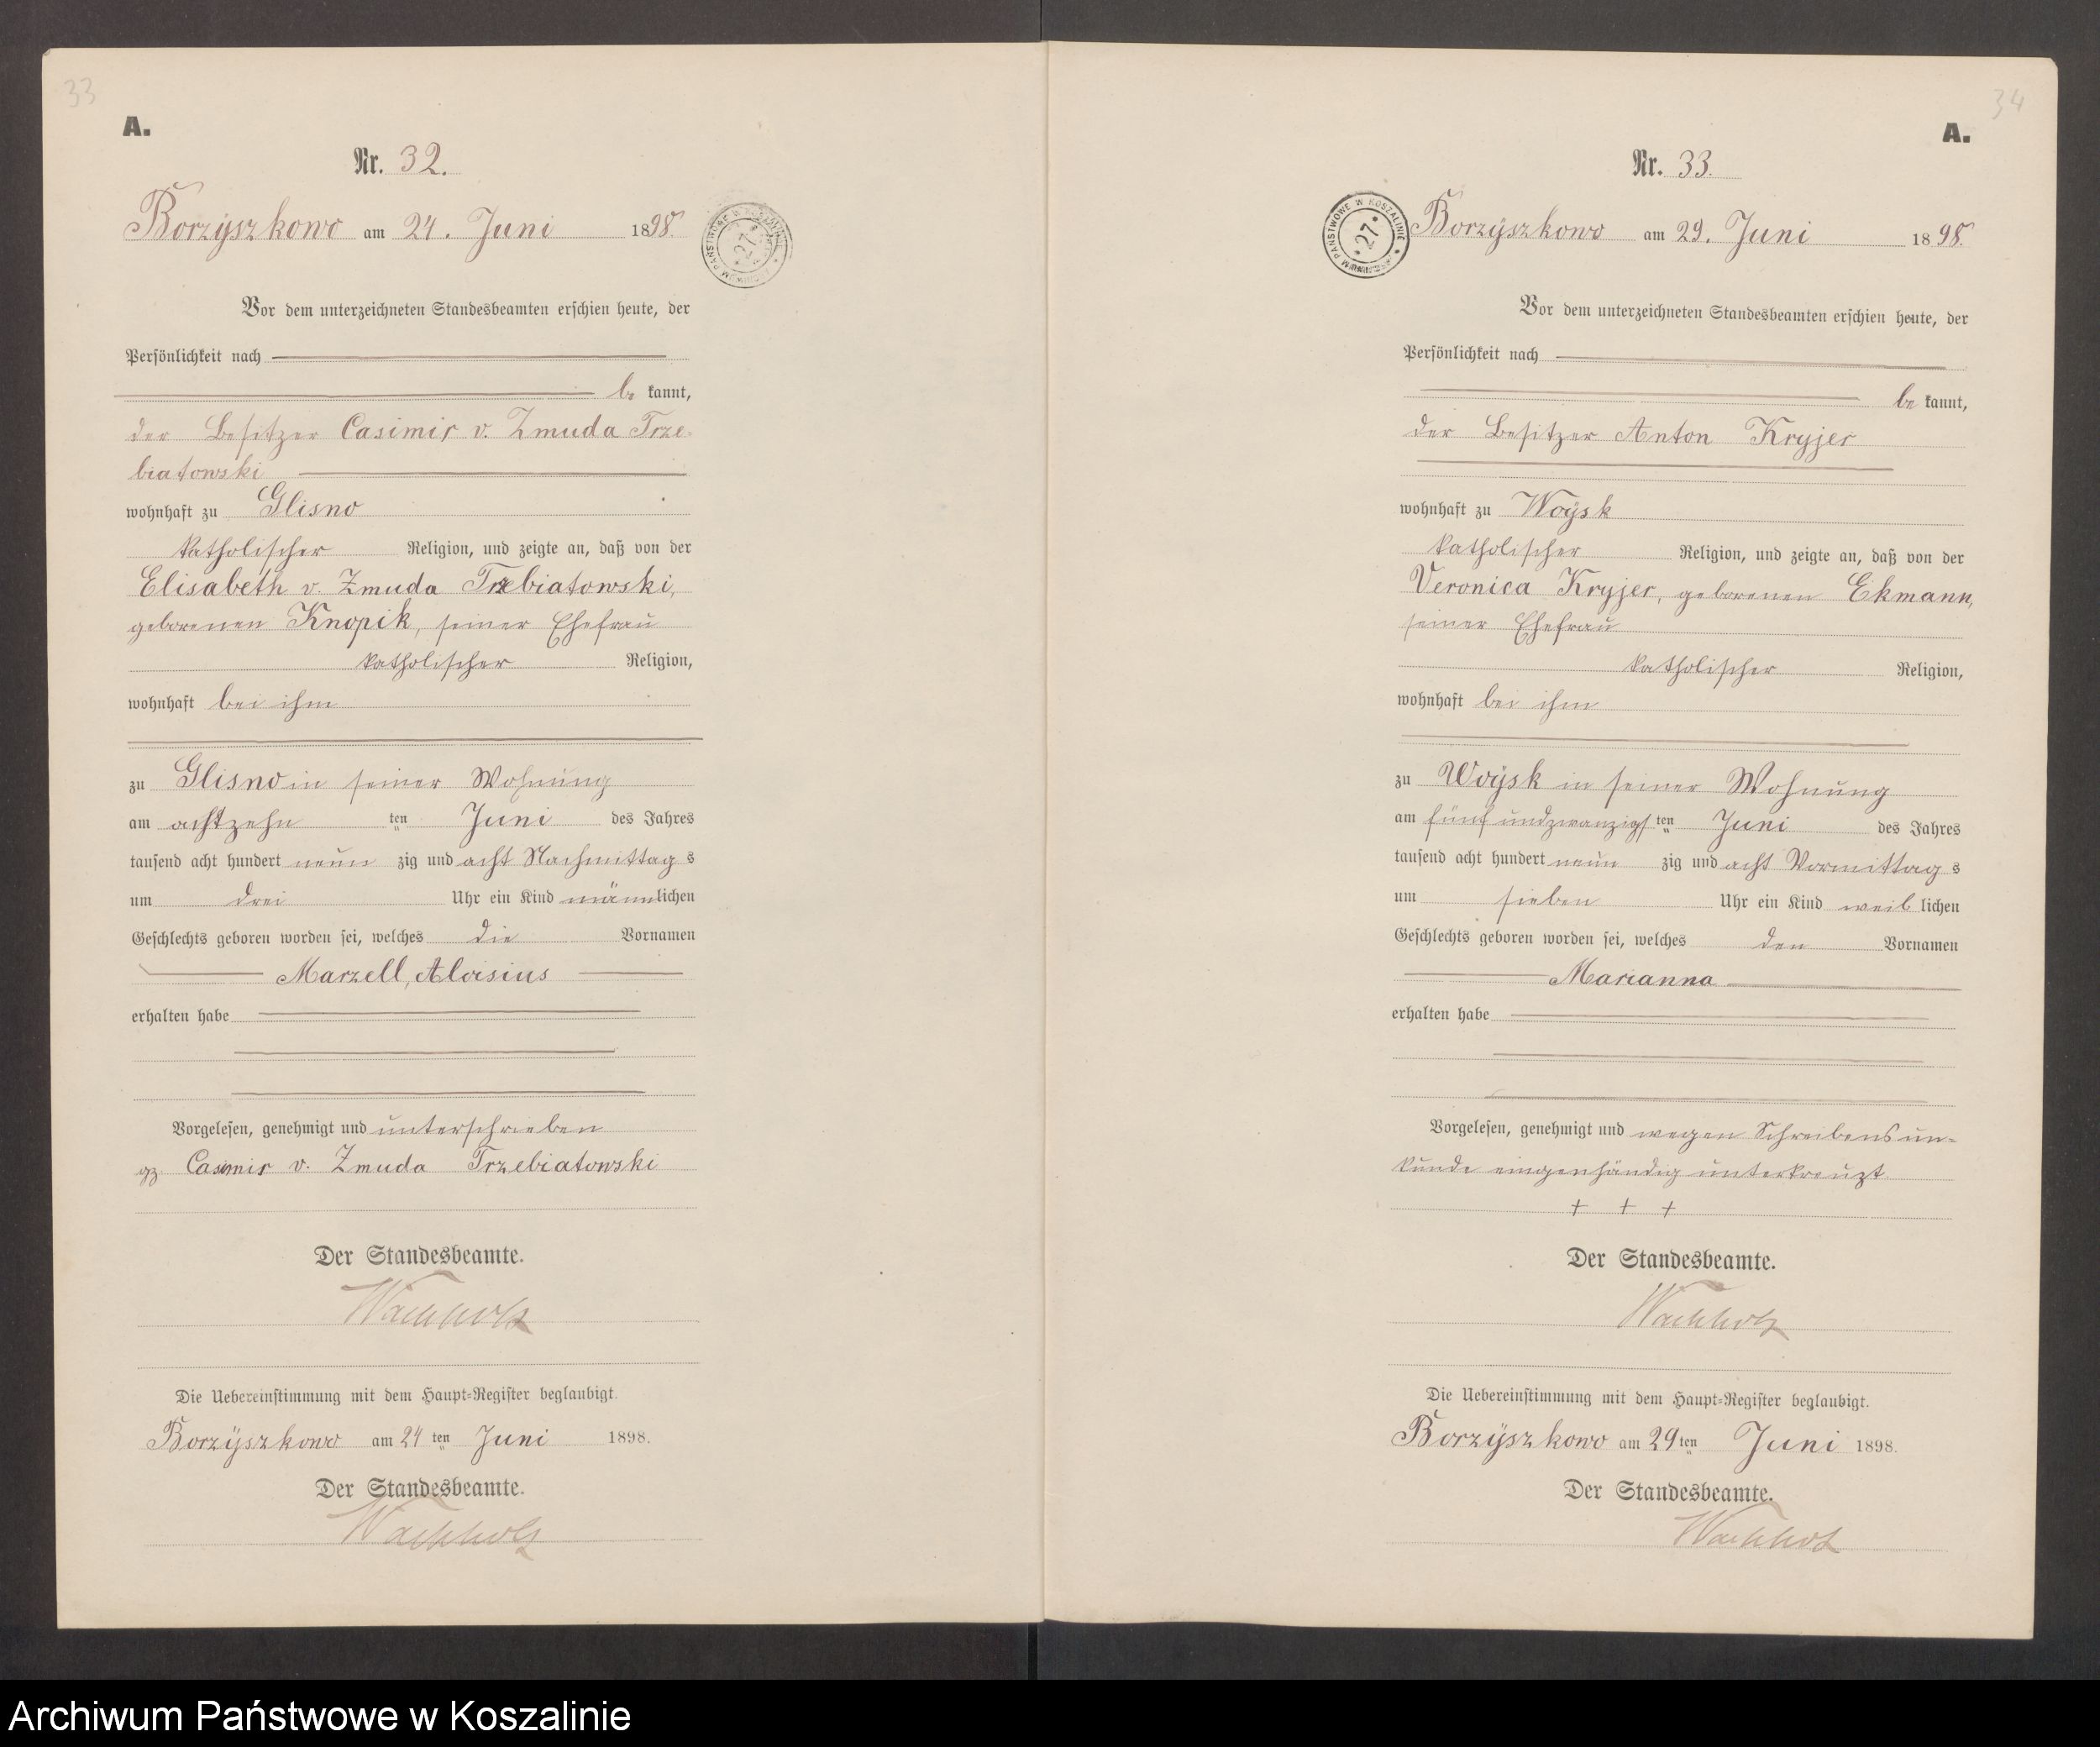 33
A.
Nr. 32.
Borzyszkowo am 24. Juni 1898.
Vor dem unterzeichneten Standesbeamten erschien heute, der
Persönlichkeit nach
be kannt,
der Besitzer Casimir v. Zmuda Trze-
biatowski
wohnhaft zu Glisno
katholischer Religion, und zeigte an, daß von der
Elisabeth v. Zmuda Trzebiatowski,
geborenen Knopik, seiner Ehefrau
katholischer Religion,
wohnhaft bei ihm
zu Glisno in seiner Wohnung
am achtzehn ten Juni des Jahres
tausend acht hundert neun zig und acht Nachmittag s
um drei Uhr ein Kind männlichen
Geschlechts geboren worden sei, welches die Vornamen
Marzell, Aloisius
erhalten habe
Vorgelesen, genehmigt und unterschrieben
gz. Casimir v. Zmuda Trzebiatowski
Der Standesbeamte.
Wachholz
Die Uebereinstimmung mit dem Haupt-Register beglaubigt.
Borzyszkowo am 24 ten Juni 1898.
Der Standesbeamte.
Wachholz
ARCHIWUM PAŃSTWOWE W KOSZALINIE
27
34
A.
Nr. 33.
Borzyszkowo am 29. Juni 1898.
Vor dem unterzeichneten Standesbeamten erschien heute, der
Persönlichkeit nach
be kannt,
der Besitzer Anton Kryjer
wohnhaft zu Woysk
katholischer Religion, und zeigte an, daß von der
Veronica Kryjer, geborenen Ekmann,
seiner Ehefrau
katholischer Religion,
wohnhaft bei ihm
zu Woysk in seiner Wohnung
am fünf undzwanzigs ten Juni des Jahres
tausend acht hundert neun zig und acht Vormittag s
um sieben Uhr ein Kind weib lichen
Geschlechts geboren worden sei, welches den Vornamen
Marianna
erhalten habe
Vorgelesen, genehmigt und wegen Schreibensun-
kunde eingenhändig unterkreuzt
+ + +
Der Standesbeamte.
Wachholz
Die Uebereinstimmung mit dem Haupt-Register beglaubigt.
Borzyszkowo am 29 ten Juni 1898.
Der Standesbeamte.
Wachholz
ARCHIWUM PAŃSTWOWE W KOSZALINIE
27
Archiwum Państwowe w Koszalinie